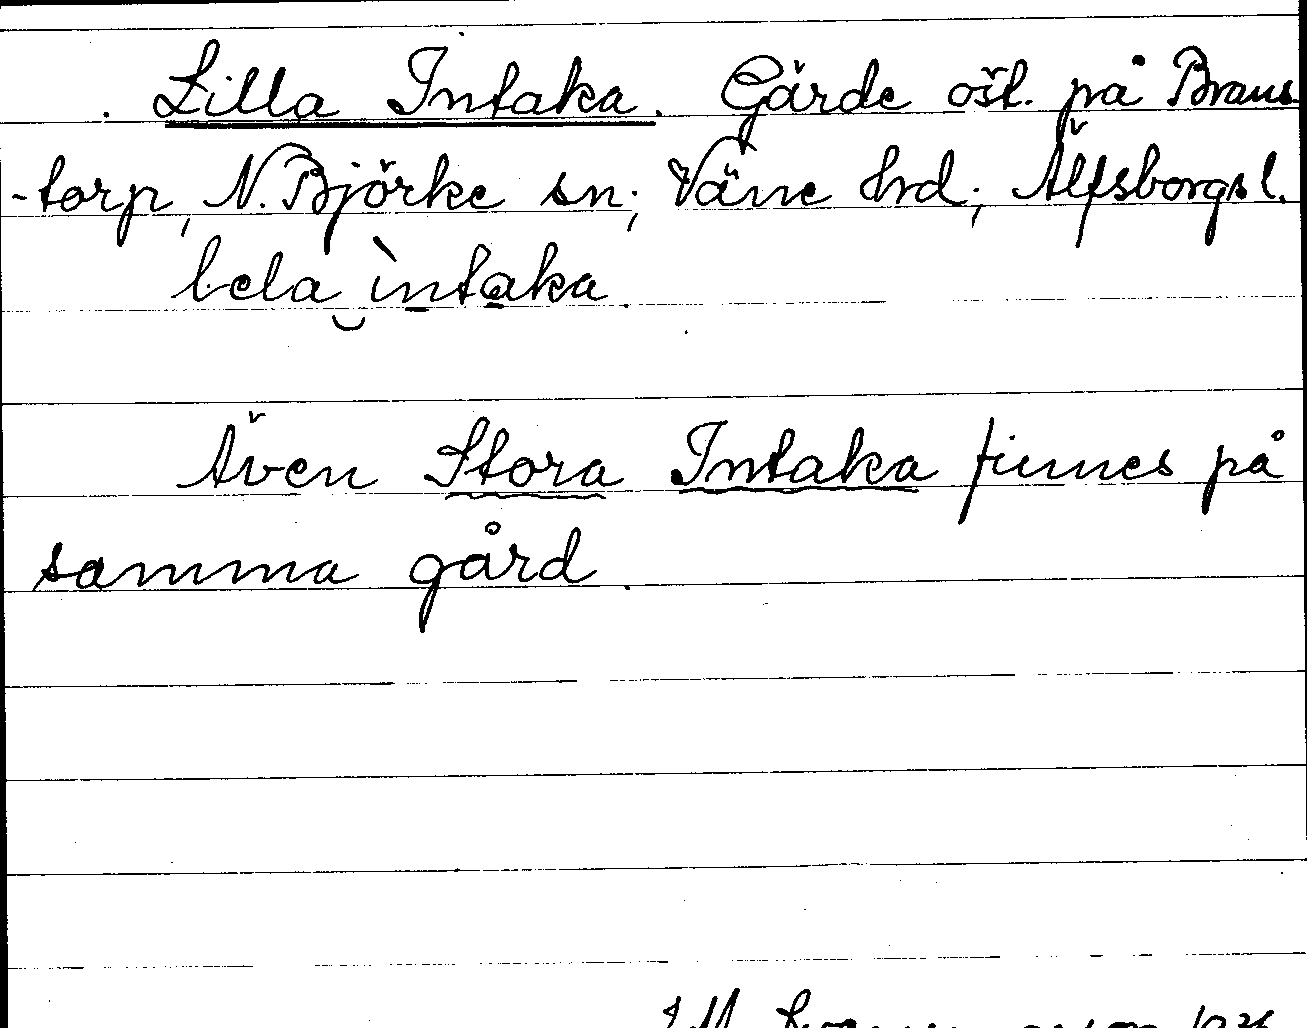 Lilla Intaka. Gärde öst. på Brans
-torp, N. Björke sn; Väne hrd; Älfsborgs l.
lela intaka.
Även Stora Intaka finnes på
samma gård.